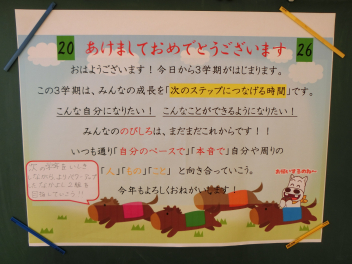 20 あけましておめでとうございます 26
おはようございます！今日から3学期がはじまります。
この3学期は、みんなの成長を「次のステップにつなげる時間」です。
こんな自分になりたい！ こんなことができるようになりたい！
みんなののびしろは、まだまだこれからです！！
いつも通り「自分のペースで」「本音で」自分や周りの
「人」「もの」「こと」と向き合っていこう。
今年もよろしくおねがいします！